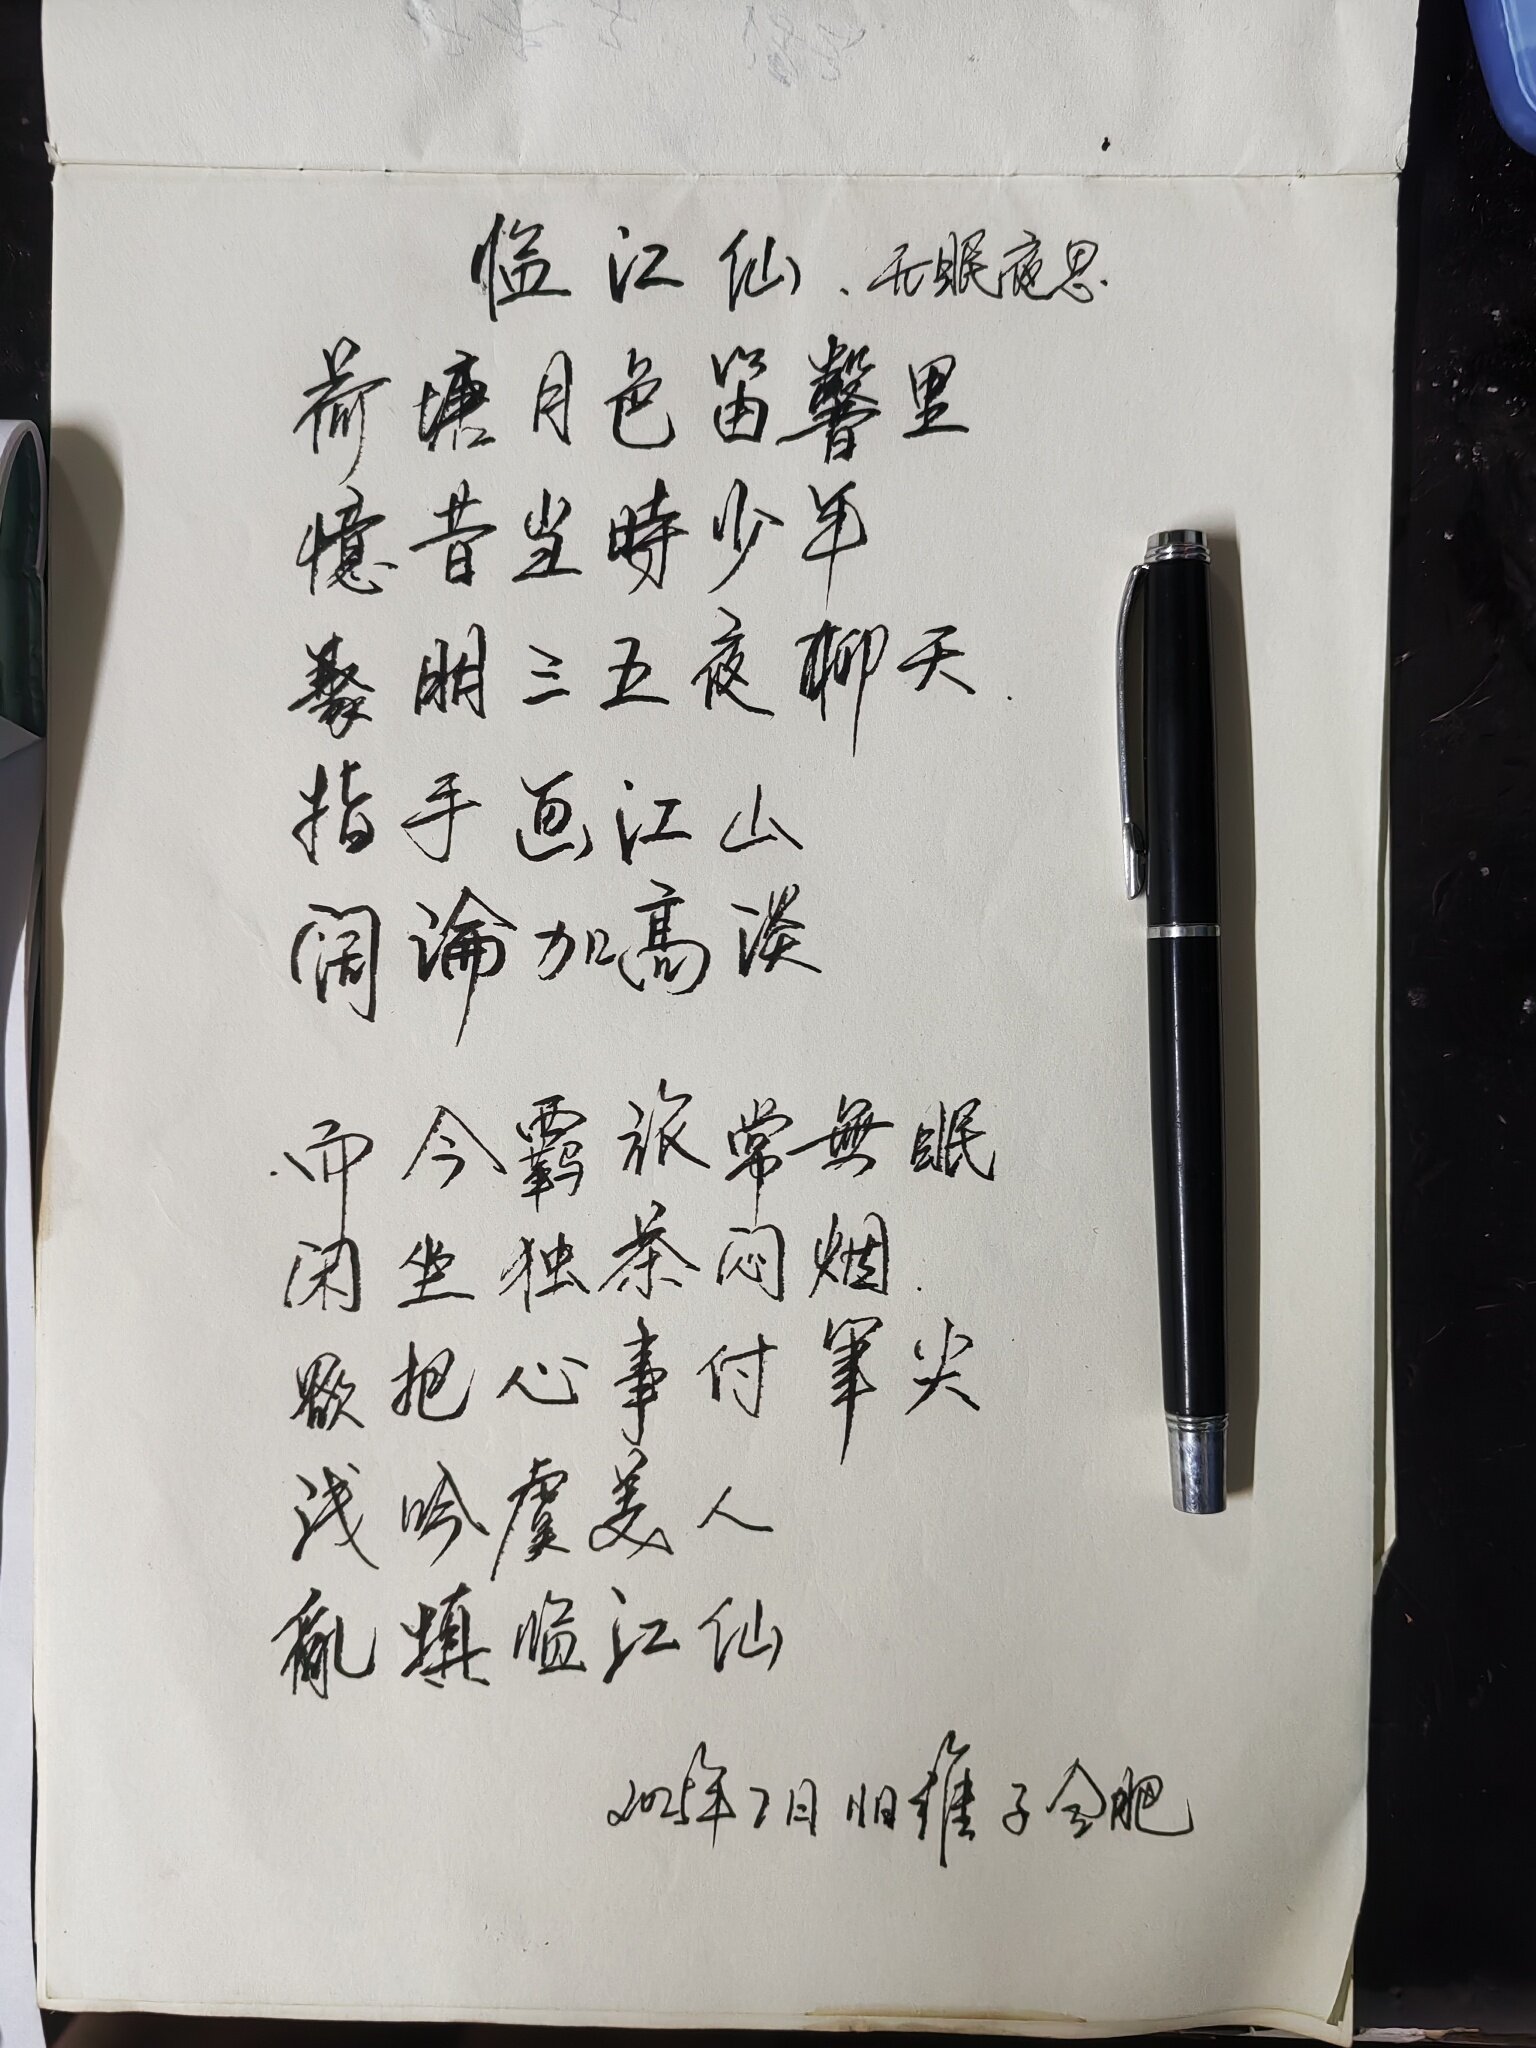 临江仙、无眠夜思
荷塘月色笛声里
憶昔当時少年
聚朋三五夜聊天
指手画江山
阔論加高淡
而今羁旅常無眠
闲坐独茶闷烟
欲把心事付笔尖
浅吟虞美人
亂填临江仙
2025年7月旧稚子合肥